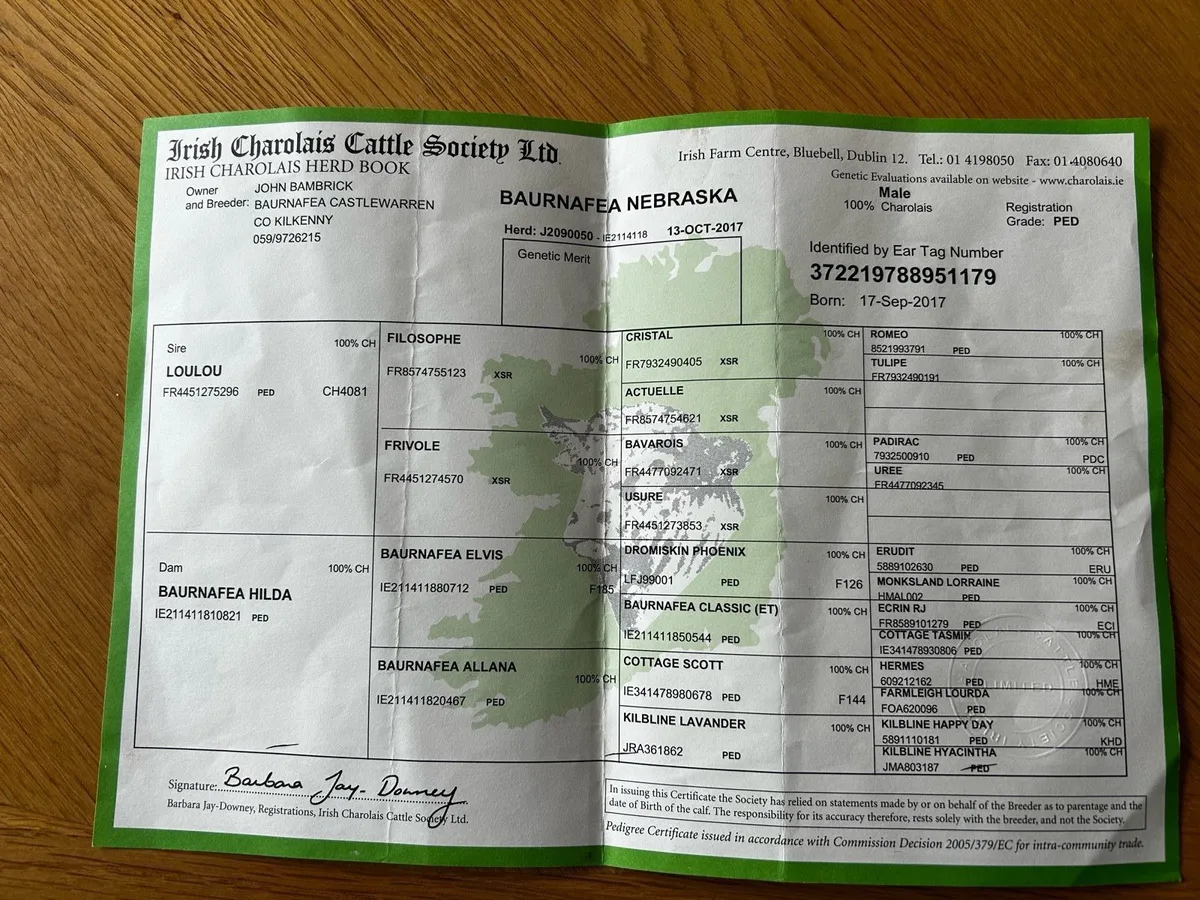 Irish Charolais Cattle Society Ltd.
IRISH CHAROLAIS HERD BOOK
Irish Farm Centre, Bluebell, Dublin 12. Tel.: 01 4198050 Fax: 01-4080640
Genetic Evaluations available on website - www.charolais.ie
Owner and Breeder:
JOHN BAMBRICK
BAURNAFEA CASTLEWARREN
CO KILKENNY
059/9726215
BAURNAFEA NEBRASKA
Herd: J2090050 - IE2114118 13-OCT-2017
Genetic Merit
Male
100% Charolais
Registration
Grade: PED
Identified by Ear Tag Number
372219788951179
Born: 17-Sep-2017
Sire 100% CH
LOULOU
FR4451275296 PED CH4081
Dam 100% CH
BAURNAFEA HILDA
IE211411810821 PED
FILOSOPHE
100% CH
FR8574755123 XSR
FRIVOLE
100% CH
FR4451274570 XSR
BAURNAFEA ELVIS
100% CH
IE211411880712 PED F185
BAURNAFEA ALLANA
100% CH
IE211411820467 PED
CRISTAL 100% CH
FR7932490405 XSR
ACTUELLE 100% CH
FR8574754621 XSR
BAVAROIS 100% CH
FR4477092471 XSR
USURE 100% CH
FR4451273853 XSR
DROMISKIN PHOENIX 100% CH
LFJ99001 PED F126
BAURNAFEA CLASSIC (ET) 100% CH
IE211411850544 PED
COTTAGE SCOTT 100% CH
IE341478980678 PED F144
KILBLINE LAVANDER 100% CH
JRA361862 PED
ROMEO 100% CH
8521993791 PED
TULIPE 100% CH
FR7932490191
PADIRAC 100% CH
7932500910 PED PDC
UREE 100% CH
FR4477092345
ERUDIT 100% CH
5889102630 PED ERU
MONKSLAND LORRAINE 100% CH
HMAL002 PED
ECRIN RJ 100% CH
FR8589101279 PED ECI
COTTAGE TASMIN 100% CH
IE341478930806 PED
HERMES 100% CH
609212162 PED HME
FARMLEIGH LOURDA 100% CH
FOA620096 PED
KILBLINE HAPPY DAY 100% CH
5891110181 PED KHD
KILBLINE HYACINTHA 100% CH
JMA803187 PED
Signature: Barbara Jay-Downey
Barbara Jay-Downey, Registrations, Irish Charolais Cattle Society Ltd.
In issuing this Certificate the Society has relied on statements made by or on behalf of the Breeder as to parentage and the
date of Birth of the calf. The responsibility for its accuracy therefore, rests solely with the breeder, and not the Society.
Pedigree Certificate issued in accordance with Commission Decision 2005/379/EC for intra-community trade.
LIMITED